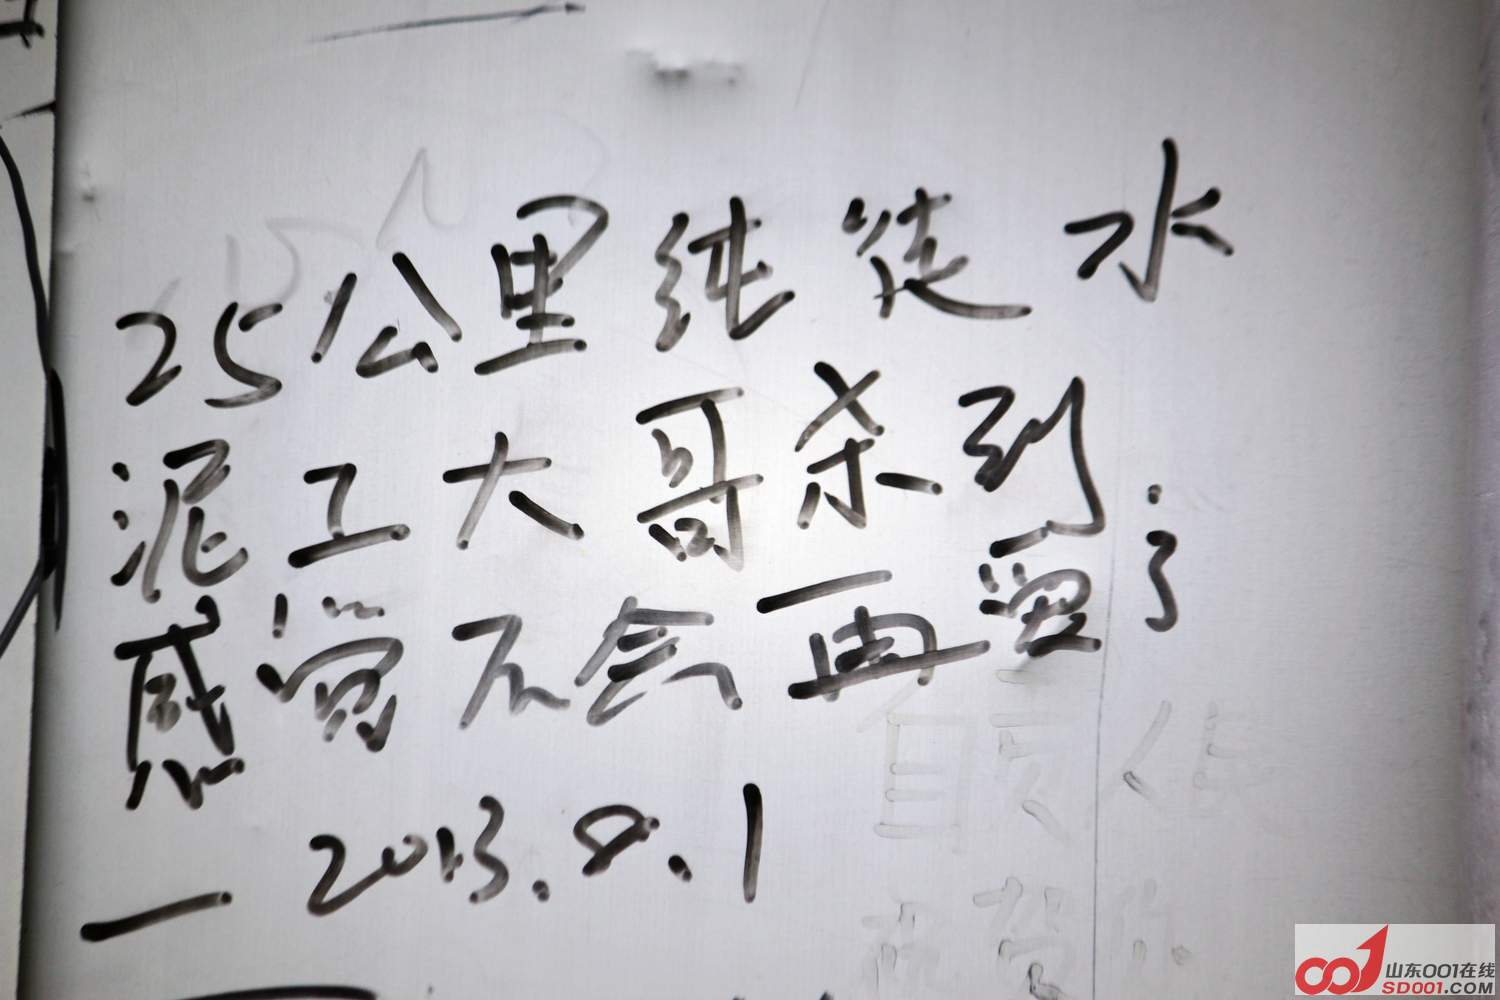 25公里纯徒水
泥工大哥杀到.
感觉不会再爱了
— 2013.8.1
山东001在线
SD001.COM